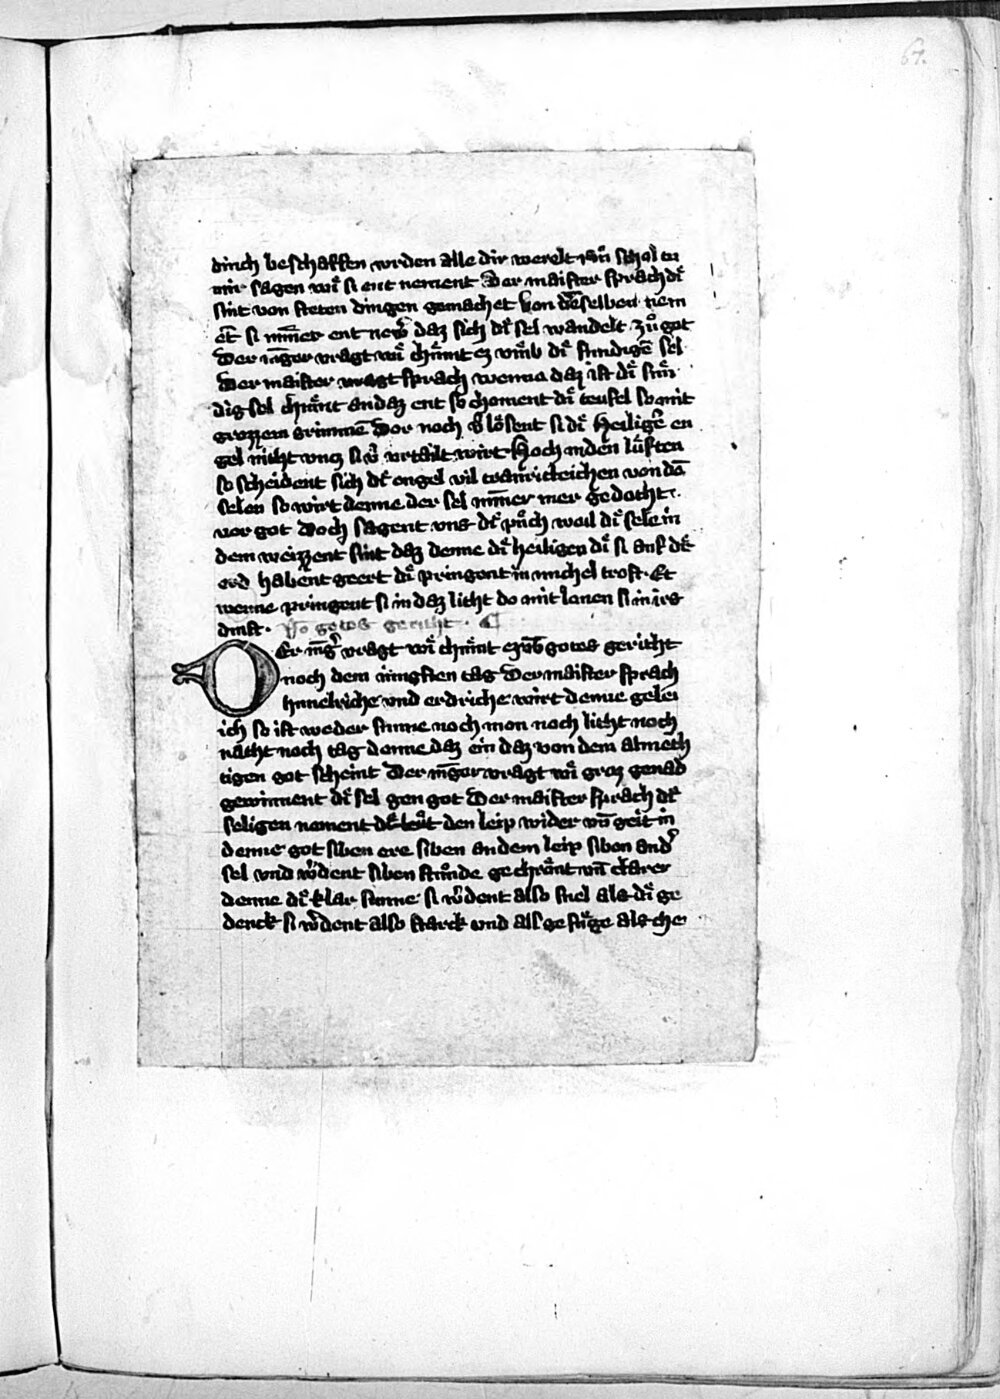 67.
dinch beschaffen wrden alle dir werelt nu scholtu
mir sagen wi si ent nement Der maister sprach di
sint von steten dingen gemachet von deselben niem
et si nimer ent daz sich di sel wandelt zuͦ got
Der iunger vragt wi chumt ez vmb di sundige sel
Der maister vragt sprach wenne daz ist di sun
dig sel chumt an daz ent so choment di teufel so mit
grozzem grimme Dor noch losent si di heilige en
gel nicht vncz si vrtailt wirt Hoch in den luften
so scheident sich di engel vil traurichleichen von do
selen so wirt denne der sel nimer mer gedocht
vor got Doch sagent vns di puͤch weil di sele in
dem weizzent sint daz denne di heiligen di si auf der
erd habent geert di pringent in michel trost Et
wenne pringent si in daz licht do mit lonen si in irs
dinst. Von gotes gericht.
Der iunger vragt wi chumt ez vmb gotes gericht
noch dem iungsten tag Der maister sprach
himelriche vnd erdriche wirt denne gelei
ich so ist weder sunne noch mon noch licht noch
nacht noch tag denne daz ein daz von dem almech
tigen got scheint Der iunger vragt wi groz genad
gewinnent di sel gen got Der maister sprach di
seligen nement den leip wider vn geit in
denne got siben ere siben an dem leip siben an der
sel vnd werdent siben stunde gechront vnd clarer
denne di klar sunne si werdent also snel als di ge
denck si werdent also starck vnd als gefuge als che